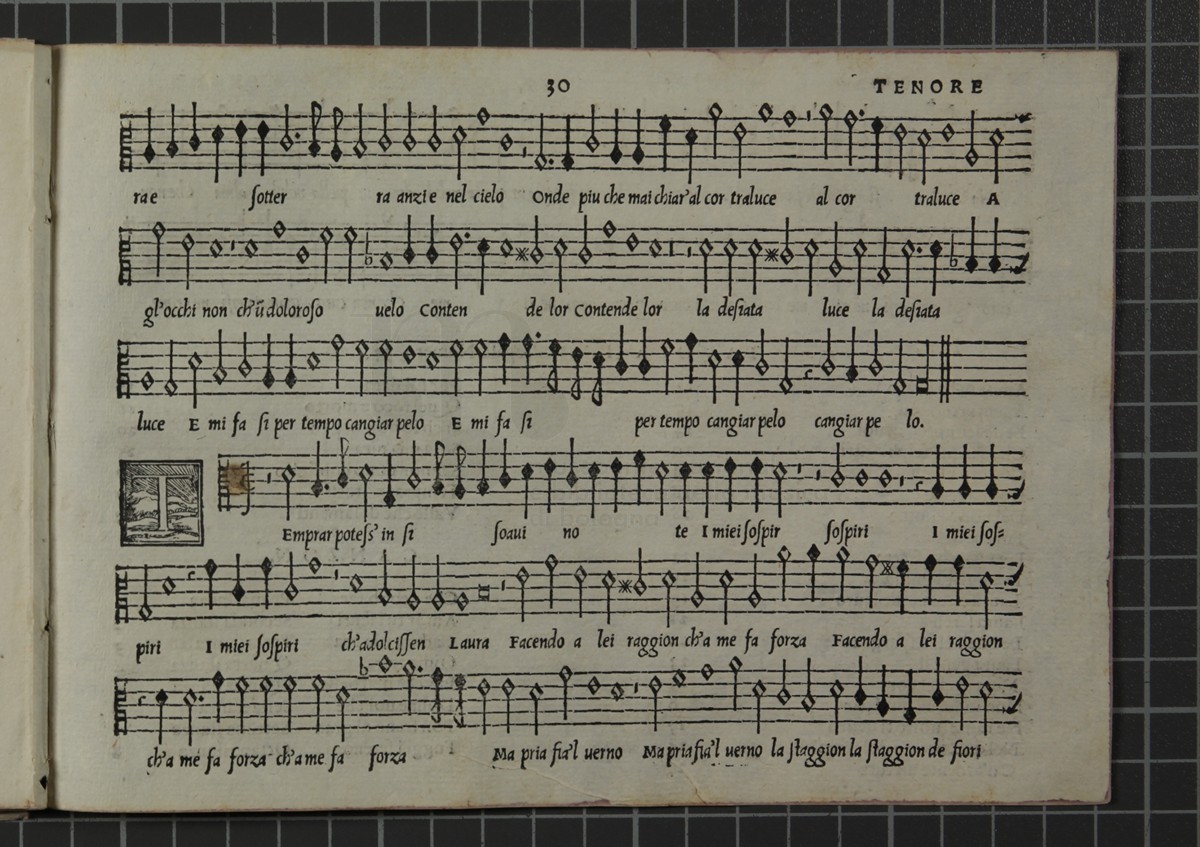 30 TENORE
ra e sotter ra anzi e nel cielo Onde piu che mai chiar' al cor traluce al cor traluce A
gl'occhi non ch'ũ doloroso uelo Conten de lor Contende lor la desiata luce la desiata
luce E mi fa si per tempo cangiar pelo E mi fa si per tempo cangiar pelo cangiar pe lo.
T Emprar potess' in si soaui no te I miei sospir sospiri I miei sos=
piri I miei sospiri ch'adolcissen Laura Facendo a lei raggion ch'a me fa forza Facendo a lei raggion
ch'a me fa forza ch'a me fa forza Ma pria fia'l uerno Ma pria fia'l uerno la staggion la staggion de fiori